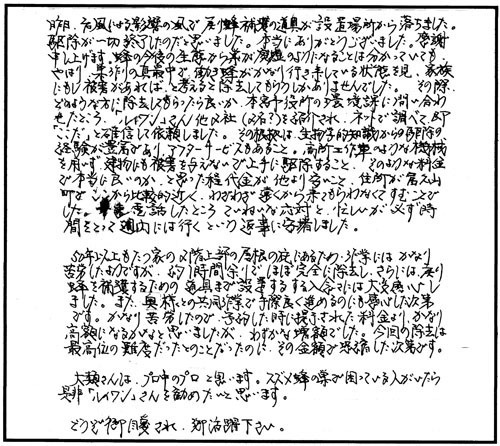 昨日、台風による影響の風で戻り蜂捕獲の道具が設置場所から落ちました。
駆除が一切終了したのだと思いました。本当にありがとうございました。感謝
申し上げます。蜂の今後の生態から巣が廃墟のようになることは分かっていても、
やはり、巣づくりの真最中で、働き蜂がかなり行き来している状態を見、家族
にもし被害があれば、と考えると除去してもらうしかありませんでした。その際、
どのような方に除去してもらったら良いか、本宮市役所の環境課に問い合わ
せたところ、「レイワン」さん他又社(名?)を紹介され、ネットで調べて即
「ここだ」と確信して依頼しました。その根拠は、生物学的知識からの駆除の
経験が豊富であり、アフターサービスもあること。高所工作車のような機械
を用いず、建物にも被害を与えないで上手に駆除すること、そのような料金
で本当に良いのか、と思った程代金が他より安いこと、住所が富久山
町でここから比較的近く、わざわざ遠くから来てもらわなくてすむことで
した。電話したところていねいな応対と、忙しいが必ず時
間をとって週内には行くという返事に安堵しました。
50年以上もたつ家の2階上部の屋根の庇にあるため、作業にはかなり
苦労したようですが、約1時間余りでほぼ完全に除去し、さらには、戻り
蜂を捕獲するための道具まで設置する入念さには大変感心し
ました。また、奥様との共同作業で手際良く進めるのにも感心した次第
です。かなり苦労したので、予約した時に提示された料金より、かなり
高額になるかなと思いましたが、わずかな増額でした。今回の除去は
最高位の難度だったとのことだったのに、その金額で恐縮した次第です。
大類さんは、プロ中のプロと思います。スズメ蜂の巣で困っている人がいたら
是非「レイワン」さんを勧めたいと思います。
どうぞ御自愛され、御活躍下さい。